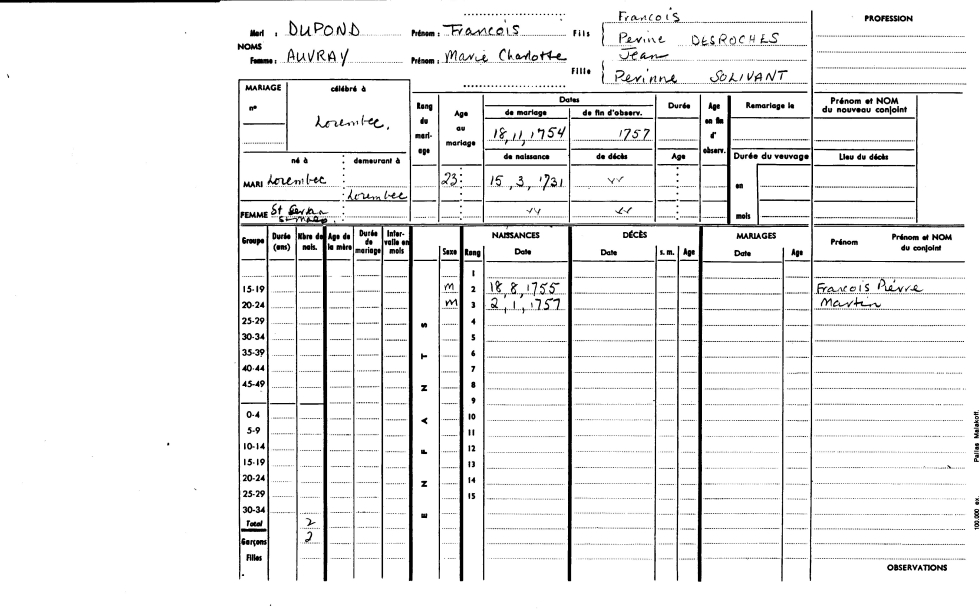 François
Mari : DUPOND Prénom : François Fils Perine DESROCHES PROFESSION
NOMS Jean
Femme : AUVRAY Prénom : Marie Charlotte Fille Perinne SOLIVANT
MARIAGE célébré à
n° Lorembec.
Rang du mariage Age au mariage Dates Durée Age en fin d'observ. Remariage le Prénom et NOM du nouveau conjoint
de mariage de fin d'observ.
18, 11, 1754 1757
né à demeurant à de naissance de décès Age Durée du veuvage Lieu du décès
MARI Lorembec Lorembec 23 15, 3, 1731 en
FEMME St Servan St Malo mois
Groupe Durée (ans) Nbre de nais. Age de la mère Durée de mariage Intervalle en mois ENFANTS Sexe Rang NAISSANCES Date DÉCÈS Date s. m. Age MARIAGES Date Age Prénom Prénom et NOM du conjoint
1
15-19 M 2 18, 8, 1755 François Pierre
20-24 M 3 2, 1, 1757 Martin
25-29 4
30-34 5
35-39 6
40-44 7
45-49 8
9
0-4 10
5-9 11
10-14 12
15-19 13
20-24 14
25-29 15
30-34
Total 2
Garçons 2
Filles
OBSERVATIONS
100.000 ex. Pallas Malakoff.